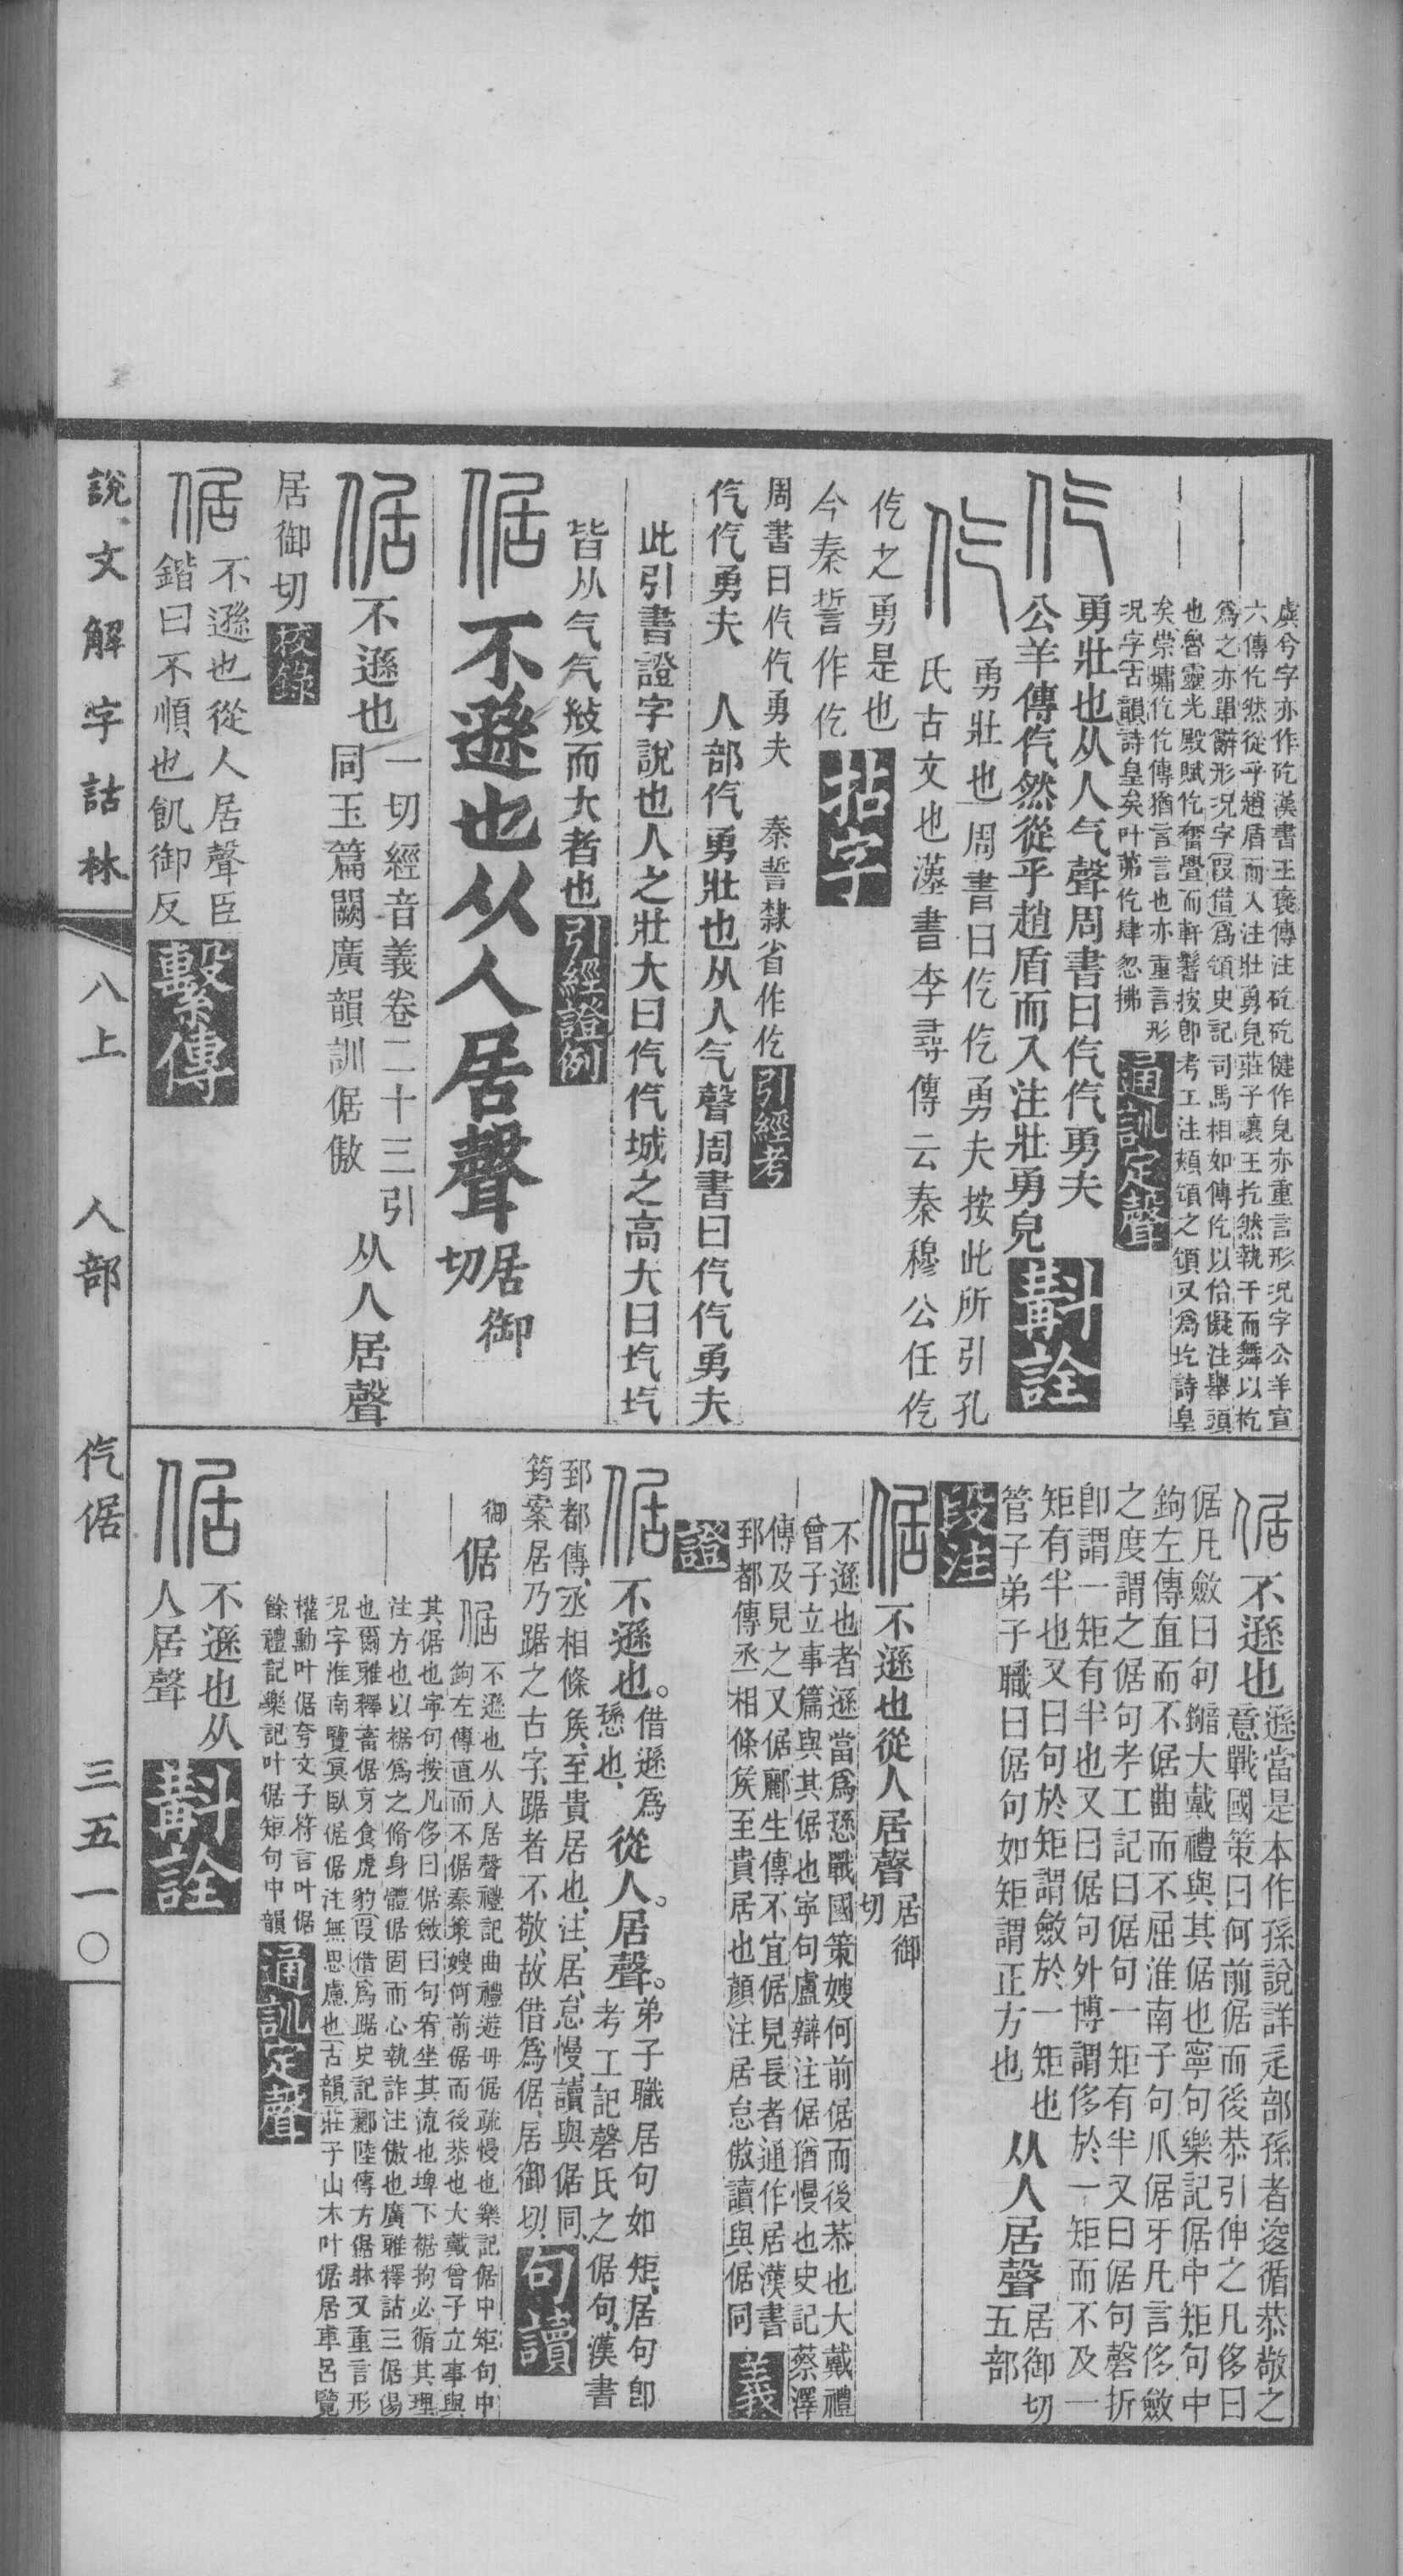 虞兮字亦作矻漢書王褒傳注矻矻健作皃亦重言形況字公羊宣
六傳仡然從乎趙盾而入注壯勇皃莊子讓王扢然執干而舞以杚
爲之亦單辭形況字叚借爲頜史記司馬相如傳仡以佁儗注舉頭
也魯靈光殿賦仡奮亹而軒鬐按卽考工注頰頜之頜又爲圪詩皇
矣崇墉仡仡傳猶言言也亦重言形
況字古韻詩皇矣叶茀仡肆忽拂
通訓定聲
勇壯也从人气聲周書曰仡仡勇夫
公羊傳仡然從乎趙盾而入注壯勇皃
斠詮
勇壯也周書曰仡仡勇夫按此所引孔
氏古文也漢書李尋傳云秦穆公任仡
仡之勇是也
今秦誓作仡
拈字
周書曰仡仡勇夫 秦誓隸省作仡
引經考
仡仡勇夫 人部仡勇壯也从人气聲周書曰仡仡勇夫
此引書證字說也人之壯大曰仡仡城之高大曰圪圪
皆从气气敍而大者也
引經證例
倨 不遜也从人居聲 居御切
倨 不遜也 一切經音義卷二十三引
同玉篇闕廣韻訓倨傲
从人居聲
居御切
校錄
倨 不遜也從人居聲臣
鍇曰不順也飢御反
繫傳
倨 不遜也 遜當是本作孫說詳辵部孫者逡循恭敬之
意戰國策曰何前倨而後恭引伸之凡侈曰
倨凡斂曰句鄒大戴禮與其倨也寧句樂記倨中矩句中
鉤左傳直而不倨曲而不屈淮南子句爪倨牙凡言侈斂
之度謂之倨句考工記曰倨句一矩有半又曰倨句磬折
卽謂一矩有半也又曰倨句外博謂侈於一矩而不及一
矩有半也又曰句於矩謂斂於一矩也 从人居聲 居御切
管子弟子職曰居句如矩謂正方也
五部
段注
倨 不遜也從人居聲 居御切
不遜也者遜當爲愻戰國策嫂何前倨而後恭也大戴禮
曾子立事篇與其倨也寧句盧辯注倨猶慢也史記蔡澤
傳及見之又倨酈生傳不宜倨見長者通作居漢書
郅都傳丞相條矦至貴居也顏注居怠傲讀與倨同
義
證
倨 不遜也。借遜爲愻也、從人。居聲。弟子職居句如矩、居句卽
考工記磬氏之倨句、漢書
郅都傳、丞相條矦、至貴居也、注、居、怠慢、讀與倨同、
筠案居乃踞之古字、踞者不敬、故借爲倨、居御切、
句讀
御
倨 倨 不遜也从人居聲禮記曲禮遊毋倨疏慢也樂記倨中矩句中
鉤左傳直而不倨秦策嫂何前倨而後恭也大戴曾子立事與
其倨也寧句按凡侈曰倨斂曰句宥坐其流也埤下裾拘必循其理
注方也以裾爲之脩身體倨固而心執詐注傲也廣雅釋詁三倨傷
也爾雅釋畜倨牙食虎豹叚借爲踞史記酈陸傳方倨牀又重言形
況字淮南覽冥臥倨倨注無思慮也古韻莊子山木叶倨居車呂覽
權勳叶倨夸文子符言叶倨
餘禮記樂記叶倨矩句中韻
通訓定聲
倨 不遜也从
人居聲
斠詮
說文解字詁林 八上 人部 仡倨 三五一〇